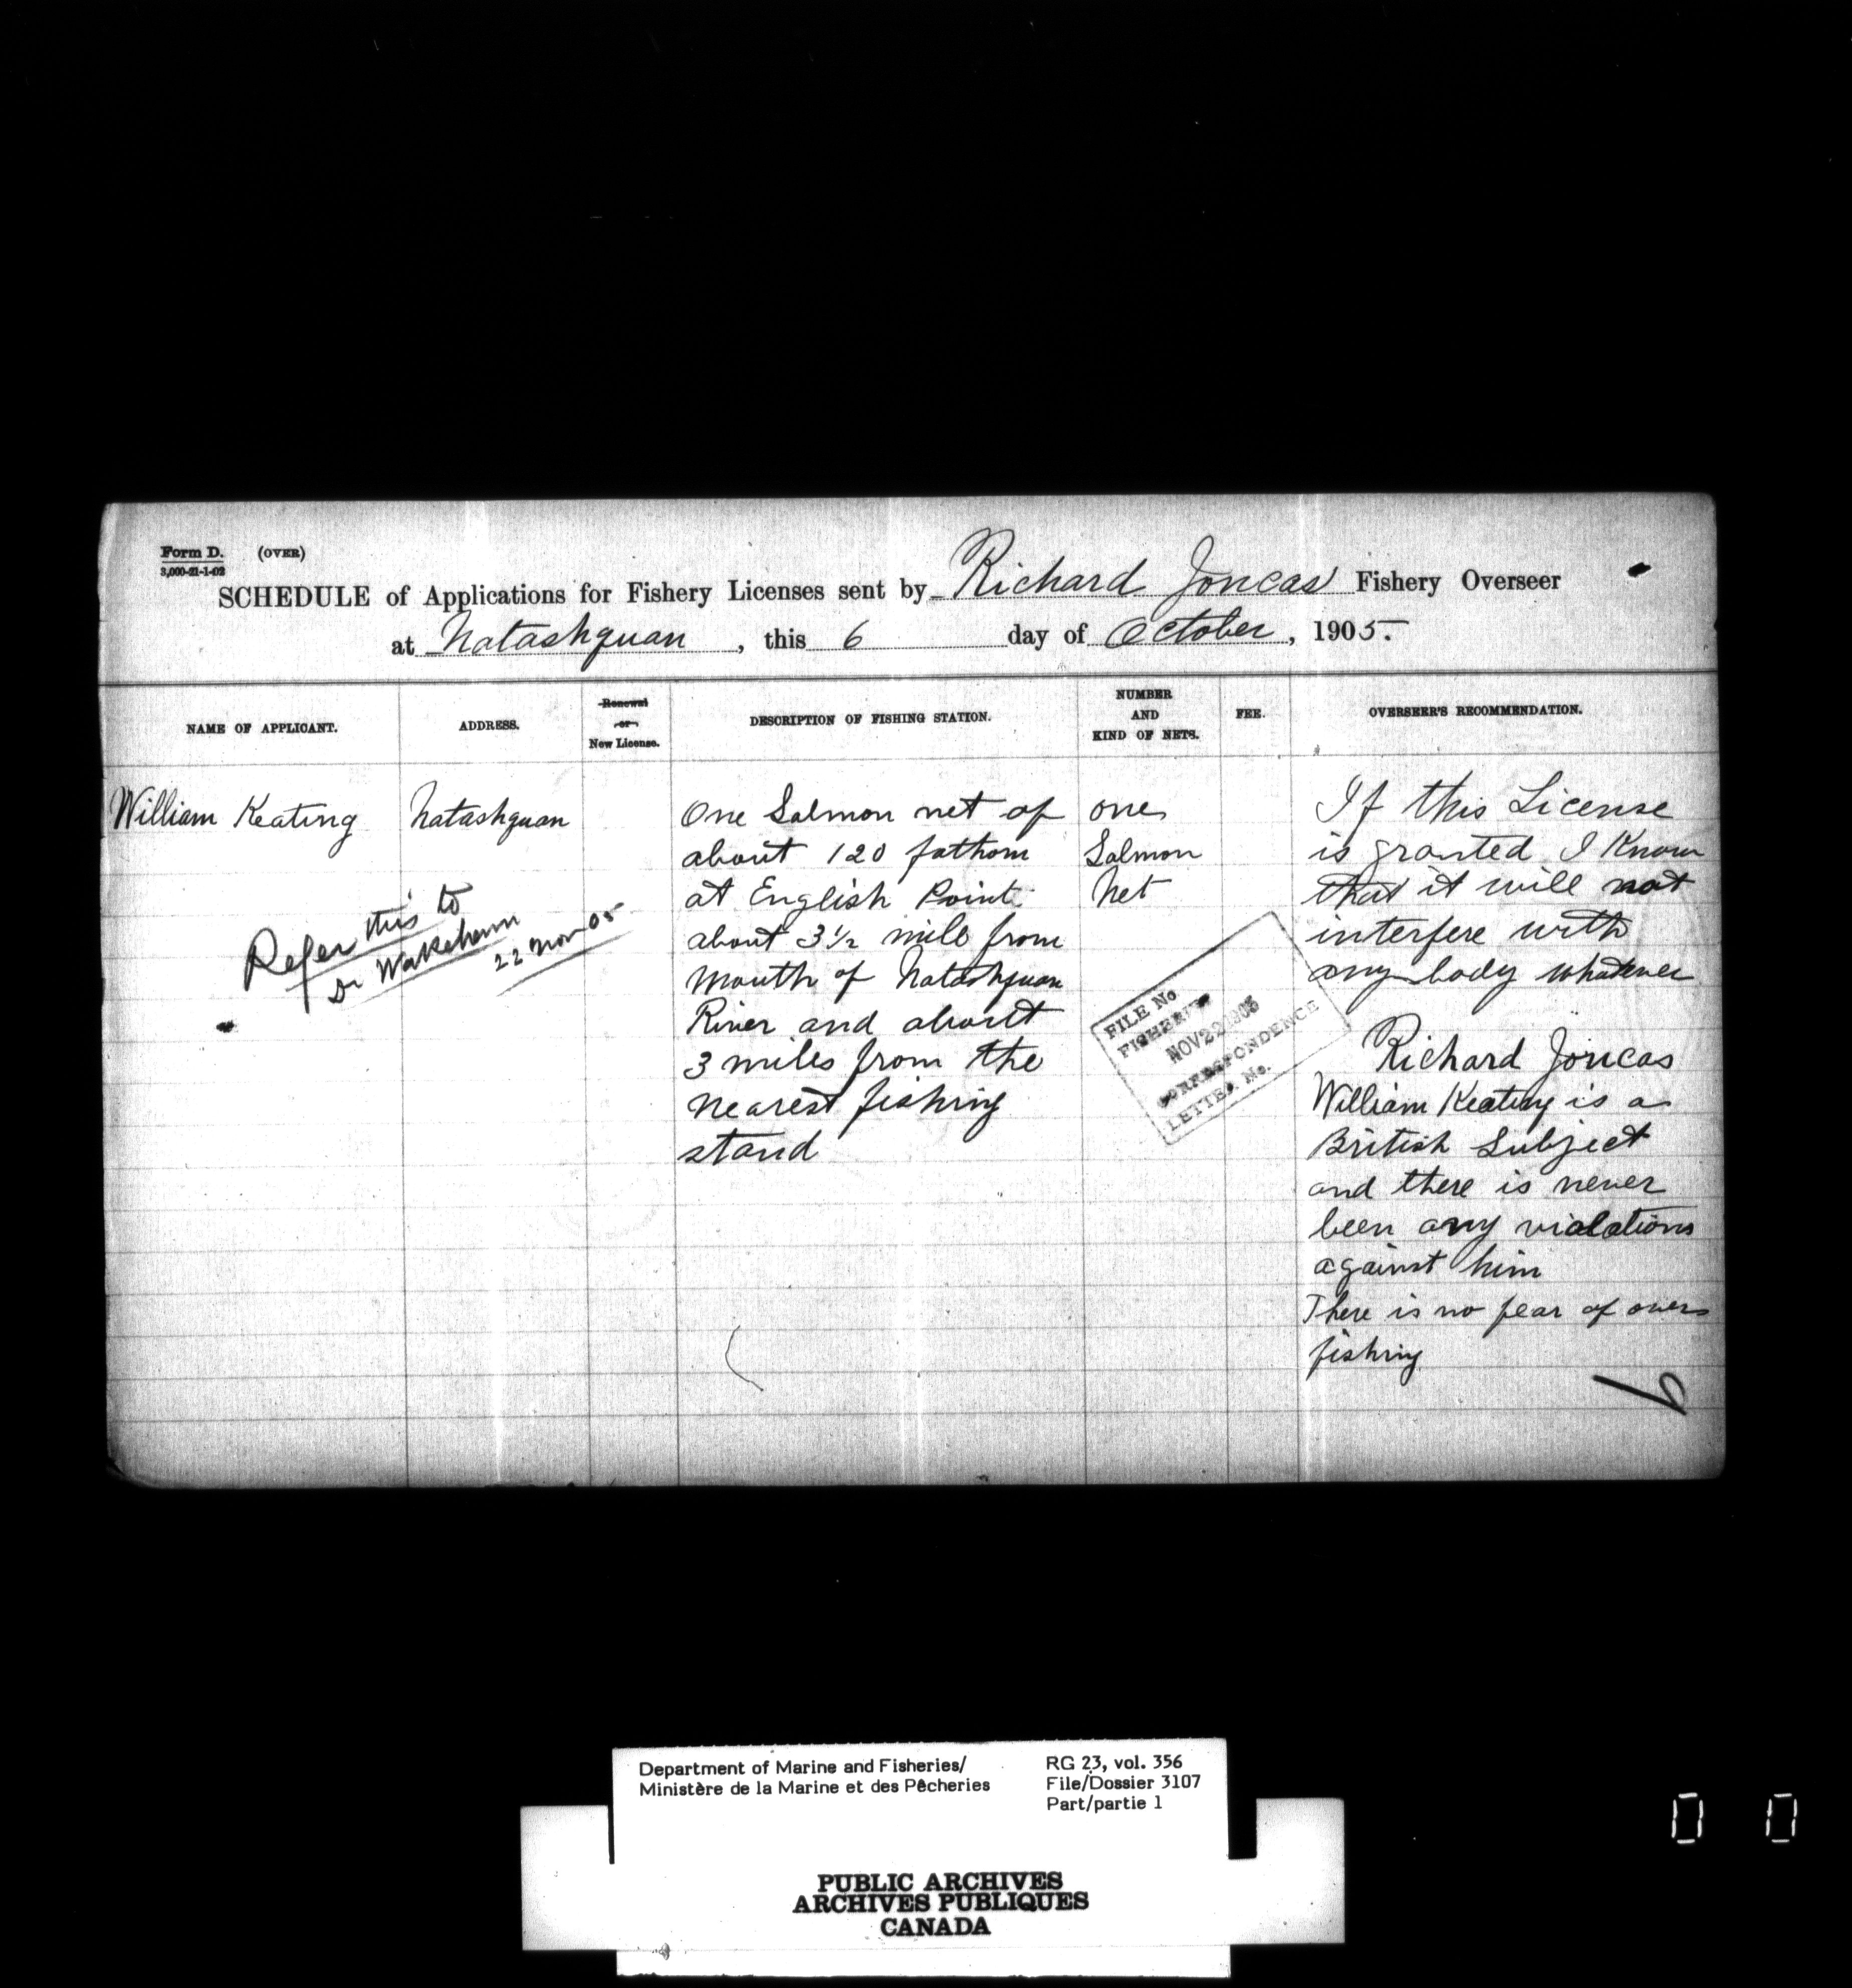 Form D. (OVER)
3,000-21-1-02
SCHEDULE of Applications for Fishery Licenses sent by Richard Joncas Fishery Overseer
at Natashquan, this 6 day of October, 1905.
NAME OF APPLICANT.
ADDRESS.
Renewal
or
New License.
DESCRIPTION OF FISHING STATION.
NUMBER
AND
KIND OF NETS.
FEE.
OVERSEER'S RECOMMENDATION.
William Keating
Natashquan
One Salmon net of
about 120 fathom
at English Point
about 3 1/2 mile from
mouth of Natashquan
River and about
3 miles from the
nearest fishing
stand
one
Salmon
Net
If this License
is granted I Know
that it will not
interfere with
any body whatever
Richard Joncas
William Keating is a
British Subject
and there is never
been any violations
against him
There is no fear of over
fishing
Refer this to
Dr Wakeham
22 Nov 05
FILE No
FISHERIES
NOV 22 1905
CORRESPONDENCE
LETTER No.
6
Department of Marine and Fisheries/
Ministère de la Marine et des Pêcheries
RG 23, vol. 356
File/Dossier 3107
Part/partie 1
PUBLIC ARCHIVES
ARCHIVES PUBLIQUES
CANADA
0 0